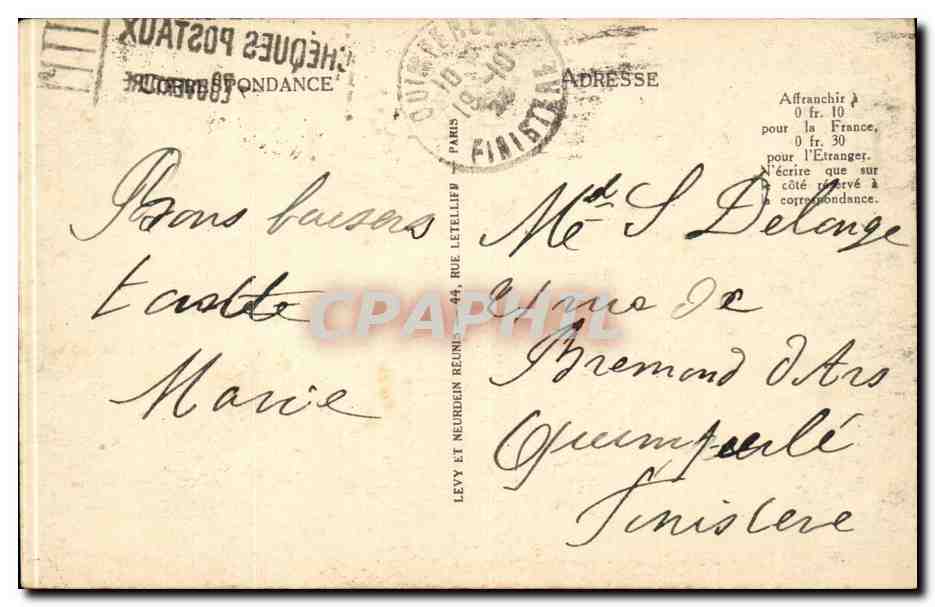 CHÈQUES POSTAUX
CORRESPONDANCE
ADRESSE
FINISTÈRE
Affranchir à
0 fr. 10
pour la France,
0 fr. 30
pour l'Etranger.
N'écrire que sur
le côté réservé à
la correspondance.
Bons baisers
Marie
LEVY ET NEURDEIN RÉUNIS — 44, RUE LETELLIER — PARIS
Md S Delange
21 rue de
Bremond d'Ars
Quimperlé
Finistere
CPAPHIL